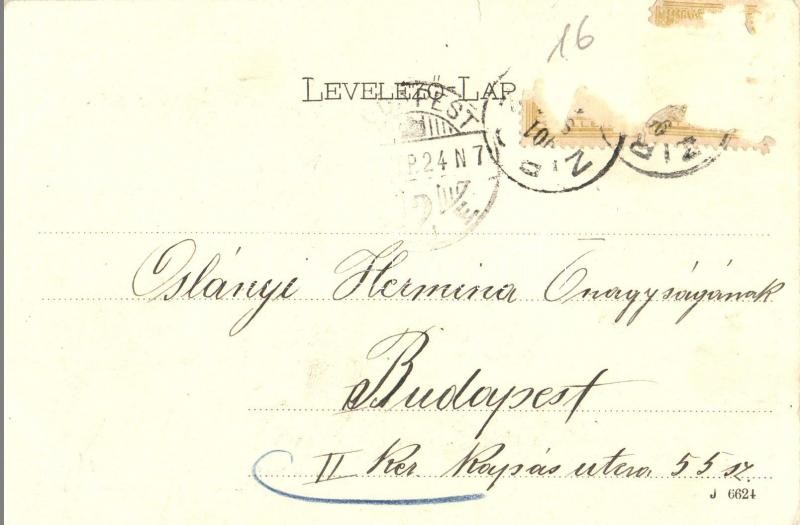 16
LEVELEZŐ-LAP
PEST
24 N7
901
ZIR
ZIR
Oslányi Hermina Őnagyságának
Budapest
II Ker Kapás utca 55 sz.
J 6624